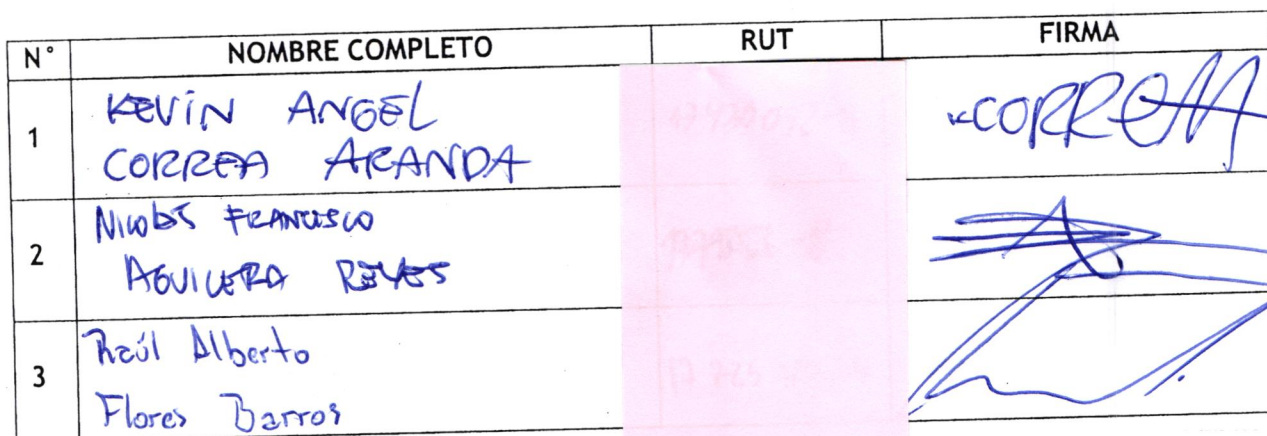 N° NOMBRE COMPLETO RUT FIRMA
1 KEVIN ANGEL
CORREA ARANDA
CORREA
2 Nicolás FRANCISCO
AGUILERA REYES
3 Raúl Alberto
Flores Barros